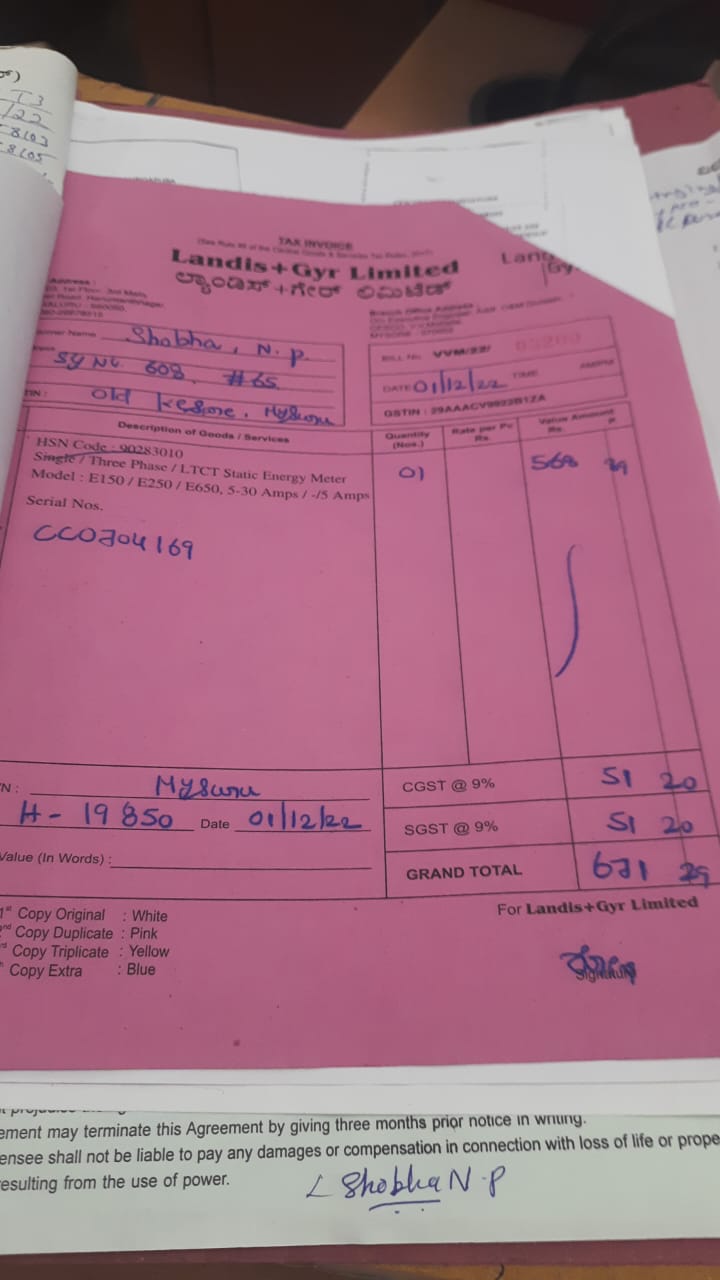 T3
/22
TAX INVOICE
Landis+Gyr Limited
ಲ್ಯಾಂಡಿಸ್+ಗೇರ್ ಲಿಮಿಟೆಡ್
Name Shobha, N.P
SY No. 608. #65
Old Kesare, Mysuru
BILL No. VVM/22/
DATE 01/12/22 TIME AM/PM
GSTIN : 29AAACV9922B1ZA
Description of Goods / Services
Quantity (Nos.)
Rate per Pc Rs.
Value Amount Rs. P
HSN Code : 90283010
Single / Three Phase / LTCT Static Energy Meter
Model : E150 / E250 / E650, 5-30 Amps / -/5 Amps
01 568 39
Serial Nos.
CC0704169
N : Mysuru
H - 19850 Date 01/12/22
Value (In Words) :
CGST @ 9% 51 20
SGST @ 9% 51 20
GRAND TOTAL 671 29
1st Copy Original : White
nd Copy Duplicate : Pink
rd Copy Triplicate : Yellow
Copy Extra : Blue
For Landis+Gyr Limited
ement may terminate this Agreement by giving three months prior notice in writing.
ensee shall not be liable to pay any damages or compensation in connection with loss of life or prope
esulting from the use of power.
Shobha N.P